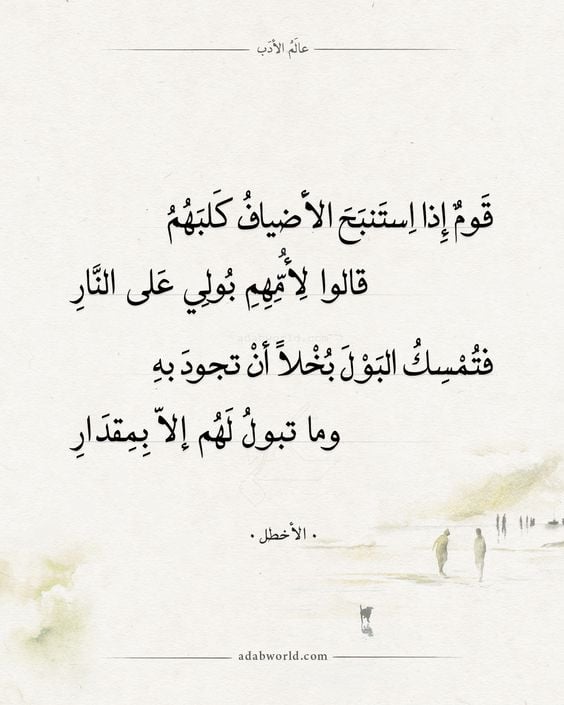 عالَمُ الأدَب
قَومٌ إِذا اِستَنبَحَ الأَضيافُ كَلبَهُمُ
قالوا لِأُمِّهِمِ بُولِي عَلى النَّارِ
فتُمْسِكُ البَوْلَ بُخْلاً أنْ تجودَ بهِ
وما تبولُ لَهُم إلاّ بِمِقدَارِ
· الأخطل ·
adabworld.com